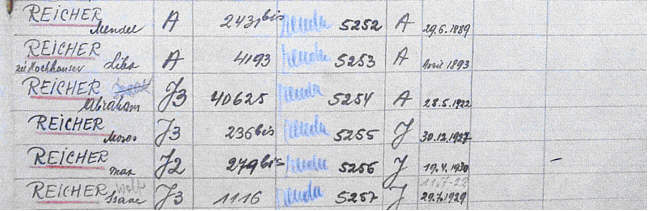 REICHER Mendel A 2431bis Rendu 5252 A 29.6.1889
REICHER née Hochhauser Liba A 4193 Rendu 5253 A Avril 1893
REICHER Abraham J3 40625 Rendu 5254 A 28.5.1922
REICHER Moses J3 236bis Rendu 5255 J 30.12.1927
REICHER Max J2 279bis Rendu 5256 J 19.4.1930 -
11.7.22
REICHER Wolf Isaac J3 1116 Rendu 5257 J 29.7.1929